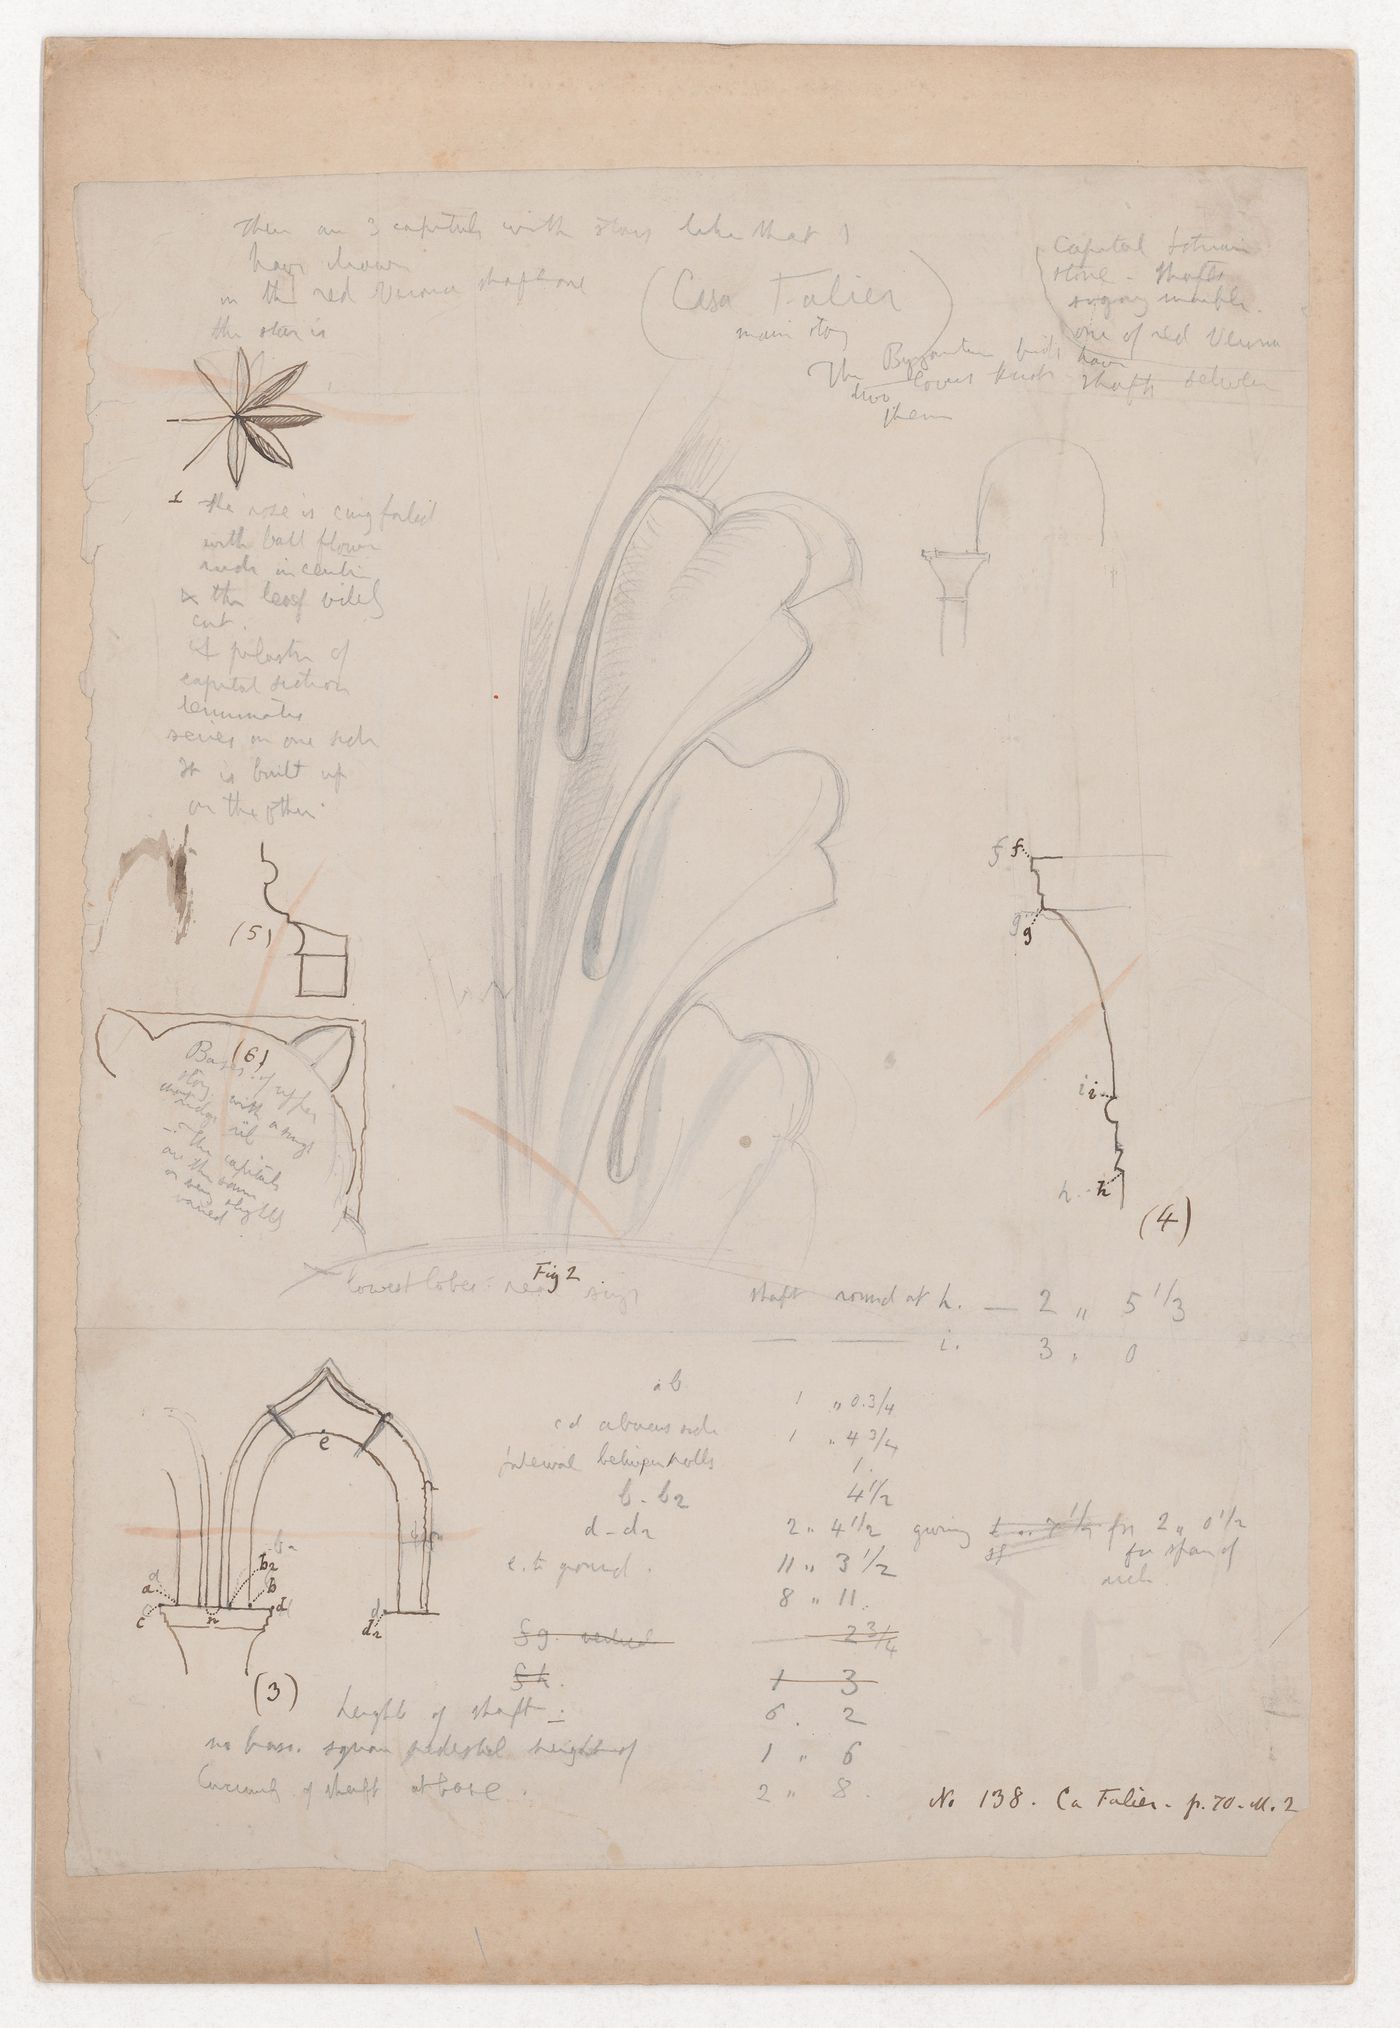 Ther are 3 capitals with stars like that I
have drawn
in the red Verona shaft one
the star is
(Casa Falier)
main story
Capital Istrian
stone - shafts
sugary marble.
one of red Verona
The Byzantine birds have
two lower shafts between
them
1
the rose is cinqfoiled
with ball flower
in centre
& the leaf vilely
cut.
A pilaster of
capital section
terminates
series on one side
It is built up
on the other.
(5)
(6)
Bases of upper
story with
ridge rib
- The capitals
are the same
or very slightly
varied
f f
g g
i i
h h
(4)
Fig 2
lowest lobes
shaft round at h. — 2 „ 5 1/3
— — i. 3 „ 0
ab 1 „ 0.3/4
cd abacus side 1 „ 4 3/4
Interval between rolls 1.
b - b2 4 1/2
d - d2 2 „ 4 1/2 giving for 2 „ 0 1/2
for span of
arch.
e. to ground. 11 „ 3 1/2
8 „ 11.
fg. vertical 2 3/4
fh. 1 3
height of shaft - 6. 2
no base. square pedestal height of 1 „ 6
Circumf of shaft at base. 2 „ 8.
e
a
a
c
n
b2
b2
b
d
d
d2
(3)
No 138. Ca Falier - p. 70 - M. 2